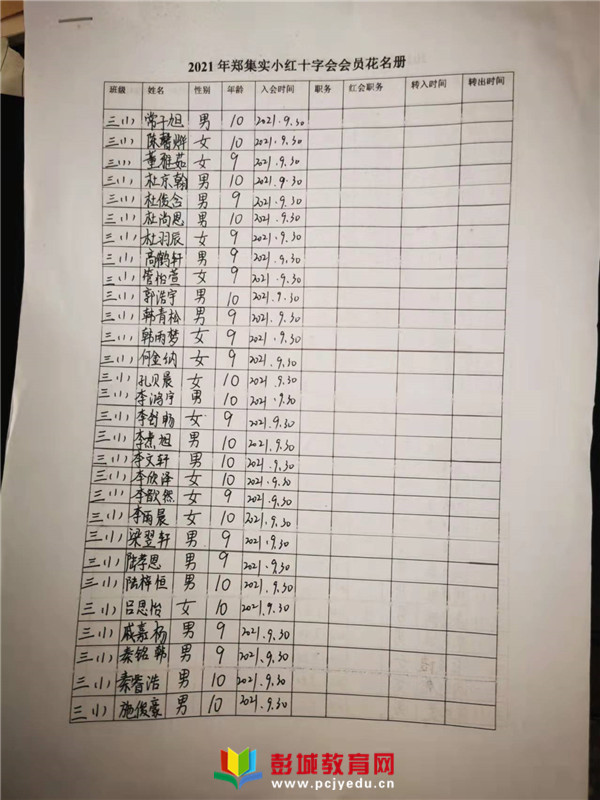 2021 年郑集实小红十字会会员花名册
班级 姓名 性别 年龄 入会时间 职务 红会职务 转入时间 转出时间
三(1) 常子旭 男 10 2021.9.30
三(1) 陈馨烨 女 10 2021.9.30
三(1) 董雅茹 女 9 2021.9.30
三(1) 杜京翰 男 10 2021.9.30
三(1) 杜俊含 男 9 2021.9.30
三(1) 杜尚恩 男 10 2021.9.30
三(1) 杜羽辰 女 9 2021.9.30
三(1) 高鹤轩 男 9 2021.9.30
三(1) 管怡萱 女 9 2021.9.30
三(1) 郭浩宇 男 10 2021.9.30
三(1) 韩青松 男 9 2021.9.30
三(1) 韩雨梦 女 9 2021.9.30
三(1) 何金纳 女 9 2021.9.30
三(1) 孔贝晨 女 10 2021.9.30
三(1) 李鸿宇 男 10 2021.9.30
三(1) 李舒畅 女 9 2021.9.30
三(1) 李景旭 男 10 2021.9.30
三(1) 李文轩 男 10 2021.9.30
三(1) 李欣泽 女 10 2021.9.30
三(1) 李歆然 女 9 2021.9.30
三(1) 李雨晨 女 10 2021.9.30
三(1) 梁翌轩 男 9 2021.9.30
三(1) 陆孝恩 男 9 2021.9.30
三(1) 陆梓恒 男 10 2021.9.30
三(1) 吕思怡 女 10 2021.9.30
三(1) 戚嘉杨 男 9 2021.9.30
三(1) 秦铭韩 男 9 2021.9.30
三(1) 秦晋浩 男 10 2021.9.30
三(1) 施俊豪 男 10 2021.9.30
彭城教育网
www.pcjyedu.com